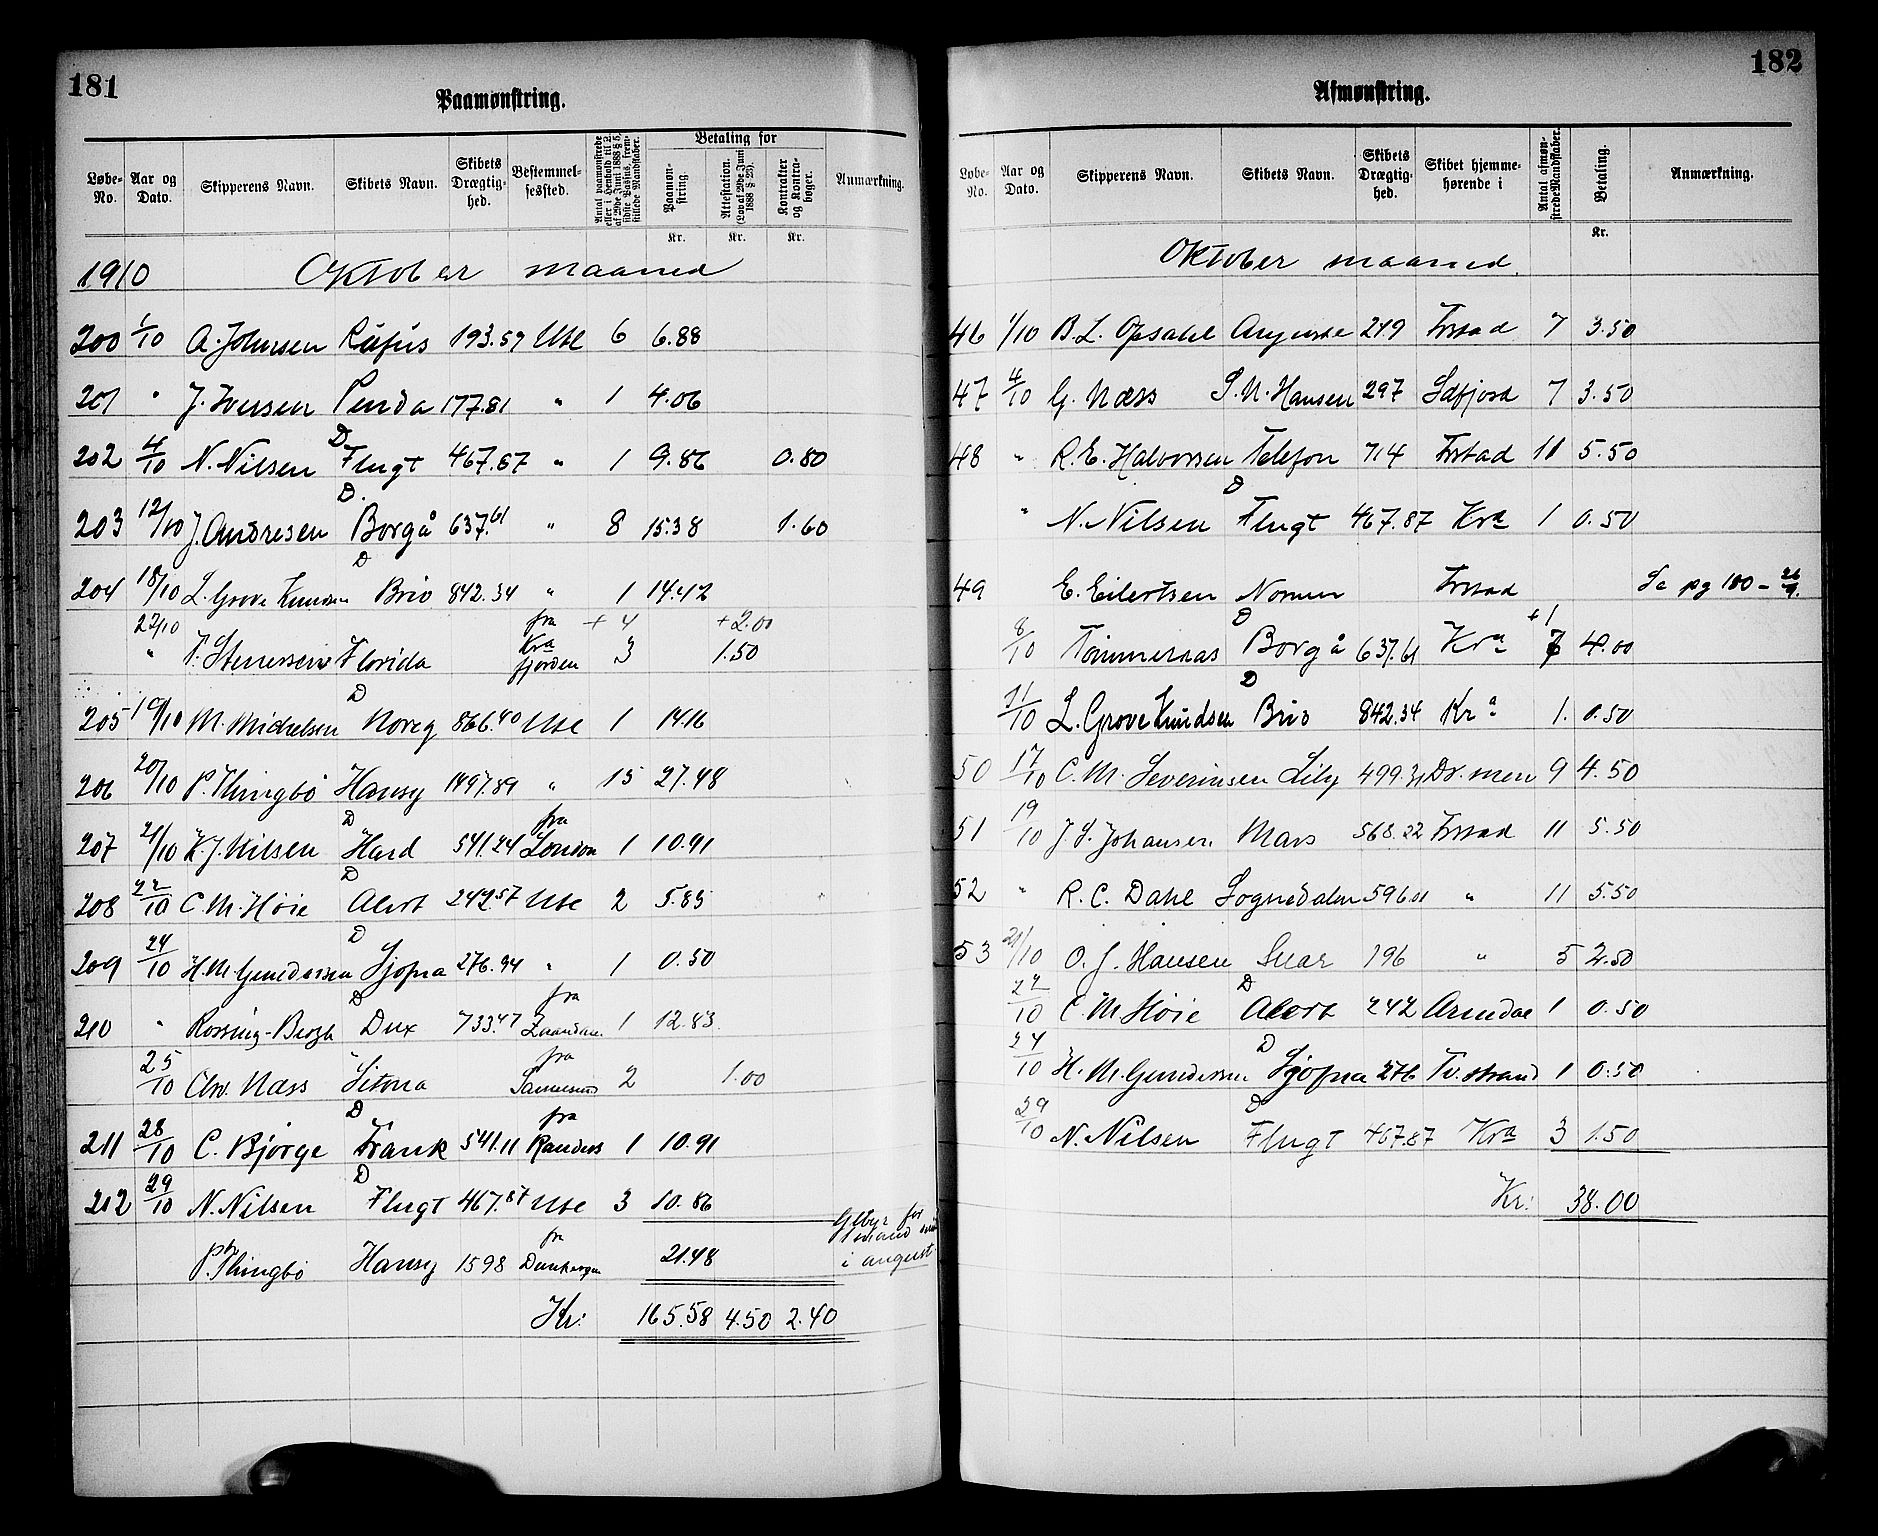 181
Paamønstring.
Løbe-No. Aar og Dato. Skipperens Navn. Skibets Navn. Skibets Drægtig-hed. Bestemmel-sessted. Antal paamønstrede eller i Henhold til L. af 29de Juni 1888 § 5, sidste Passus, frem-stillede Mandskaber. Betaling for Paamøn-string. Attestation. (Lov af 29de Juni 1888 § 23). Kontrakter og Kontra-bøger. Anmærkning.
Kr. Kr. Kr.
1910 Oktober maaned
200 1/10 A. Johnsen Rufus 193.59 Ube 6 6.88
201 " J. Iversen Penda 177.81 " 1 4.06
202 4/10 N. Nilsen D Flugt 467.87 " 1 9.86 0.80
203 12/10 J. Andresen D. Borgå 637.61 " 8 15.38 1.60
204 18/10 L. Grove Knudsen D Brio 842.34 " 1 14.42
22/10 fra + 4 + 2.00
" Florida Kra fjorden 3 1.50
205 19/10 M. Michelsen D Noreg 866.40 Ube 1 14.16
206 20/10 P. Thingbø Hansy 1497.89 " 15 27.48
207 21/10 K. J. Nilsen D Hard 541.24 fra London 1 10.91
208 22/10 C. M. Høie D Alert 242.57 Ube 2 5.85
209 24/10 H. M. Gundersen D Sjofna 276.94 " 1 0.50
210 " Rossing-Bergh D Dux 733.47 fra Zaandam 1 12.83
25/10 Chr. Næss Sitona fra 2 1.00
211 28/10 C. Bjørge D Frank 541.11 fra Randers 1 10.91
212 29/10 N. Nilsen D Flugt 467.87 Ube 3 10.86
P. Thingbø Hansy 1598 fra 21.48 i august
Kr: 165.58 4.50 2.40
182
Afmønstring.
Løbe-No. Aar og Dato. Skipperens Navn. Skibets Navn. Skibets Drægtig-hed. Skibet hjemme-hørende i Antal afmøn-strede Mandskaber. Betaling. Anmærkning.
Kr.
Oktober maaned.
46 1/10 B. L. Opsahl Auguste 249 Frstad 7 3.50
47 4/10 G. Næss S. N. Hansen 297 Sdfjord 7 3.50
48 " R. E. Halvorsen Telefon 714 Frstad 11 5.50
" N. Nilsen D Flugt 467.87 Kra 1 0.50
49 E. Eilertsen Nornen Frstad Se pg 180 - 26/9.
8/10 Tømmeraas D Borgå 637.61 Kra +1 7 4.00
11/10 L. Grove Knudsen D Brio 842.34 Kra 1. 0.50
50 17/10 C. M. Severinsen Lily 499.31 Dr.men 9 4.50
51 19/10 J. S. Johansen Mars 568.22 Frstad 11 5.50
52 " R. C. Dahl Sognedalen 596.01 " 11 5.50
53 21/10 O. J. Hansen Snar 196 " 5 2.50
22/10 C. M. Høie D Alert 242 Arendal 1 0.50
24/10 H. M. Gundersen D Sjofna 276 Tv.strand 1 0.50
29/10 N. Nilsen D Flugt 467.87 Kra 3 1.50
Kr: 38.00